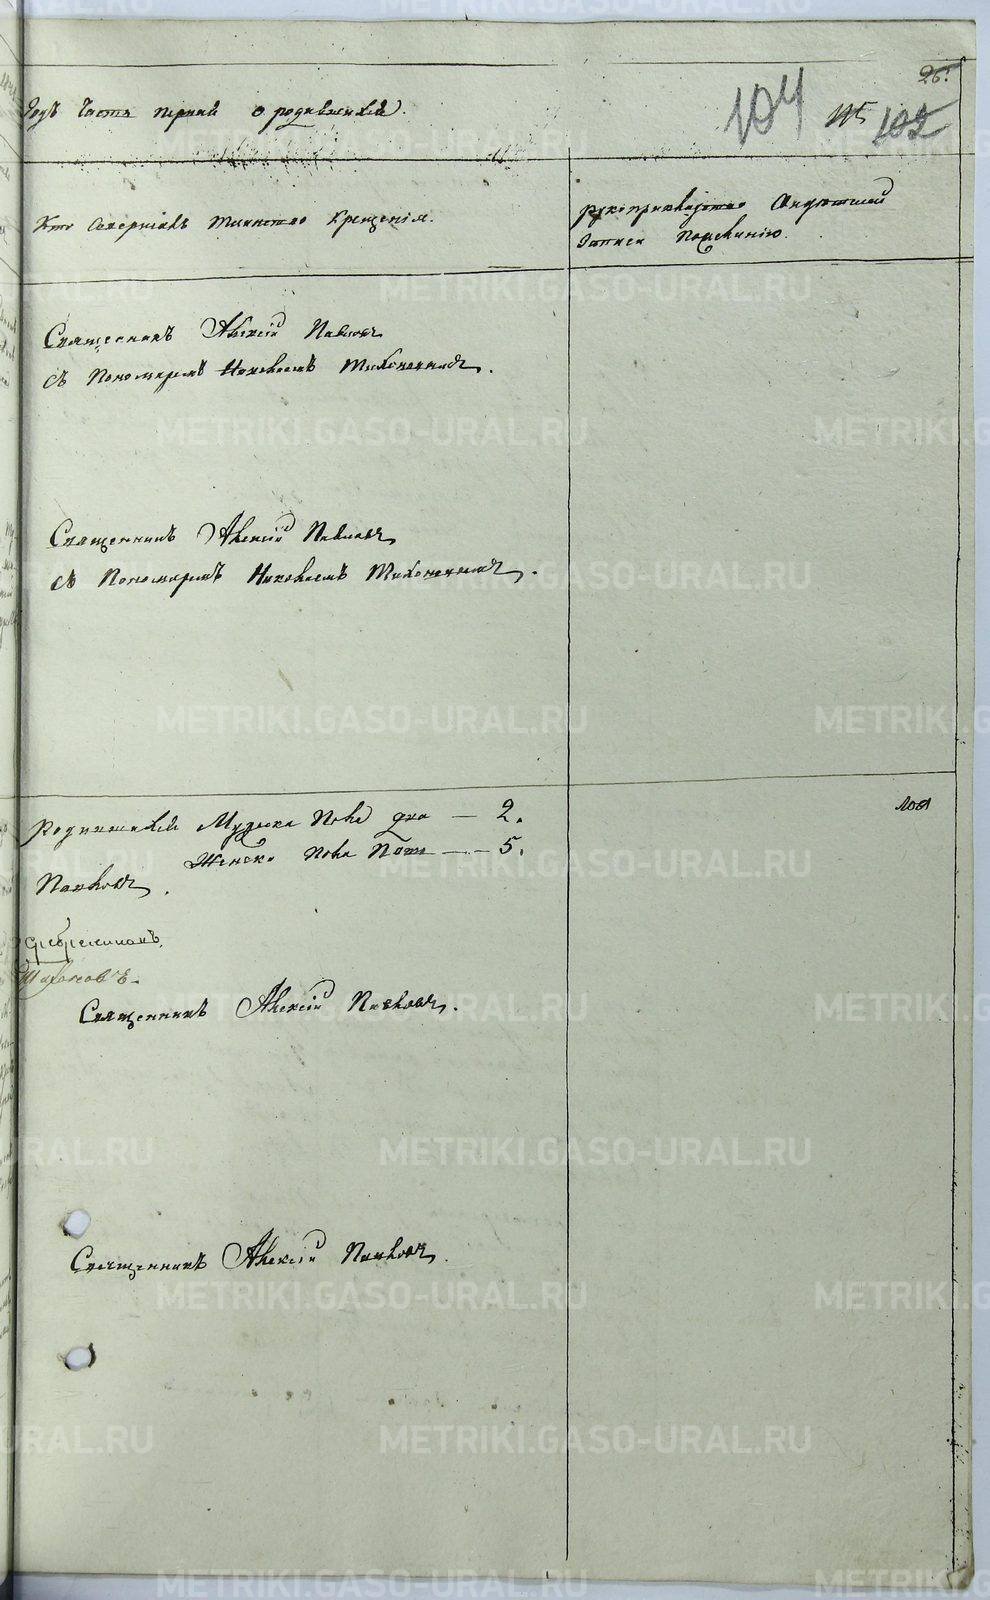 26.
Годъ Часть первая о родившихся.
104 102
Кто совершалъ таинство крещенія.
рукоприкладство Свидѣтелей
Записи по желанію.
Священникъ Алексій Павловъ
съ Пономаремъ Тихоновымъ.
Священникъ Алексій Павловъ
съ Пономаремъ Тихоновымъ.
Родившихся Мужеска пола два — 2.
Женска пола пять — 5.
Павловъ.
Тихоновъ.
Священникъ Алексій Павловъ.
Священникъ Алексій Павловъ.
METRIKI.GASO-URAL.RU